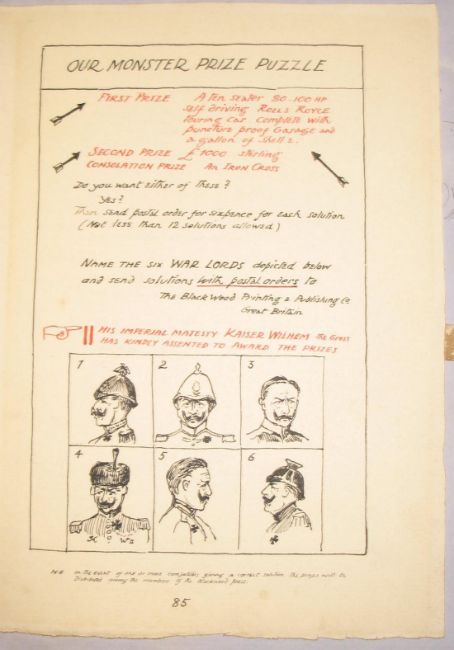 OUR MONSTER PRIZE PUZZLE
FIRST PRIZE A ten seater 80-100 HP
self driving ROLLS ROYCE
touring car complete with
puncture proof Garage and
a gallon of shell 2.
SECOND PRIZE £1000 stirling
CONSOLATION PRIZE AN IRON CROSS
Do you want either of these?
Yes?
Then send postal order for sixpence for each solution
(Not less than 12 solutions allowed)
NAME THE SIX WAR LORDS depicted below
and send solutions with postal orders to
The BlackWood Printing & Publishing Co
Great Britain
HIS IMPERIAL MAJESTY KAISER WILHEM the Gross
HAS KINDLY ASSENTED TO AWARD THE PRIZES
1 2 3
4 5 6
N.B. In the event of one or more competitors giving a correct solution the prizes will be
distributed among the members of the Blackwood press.
85